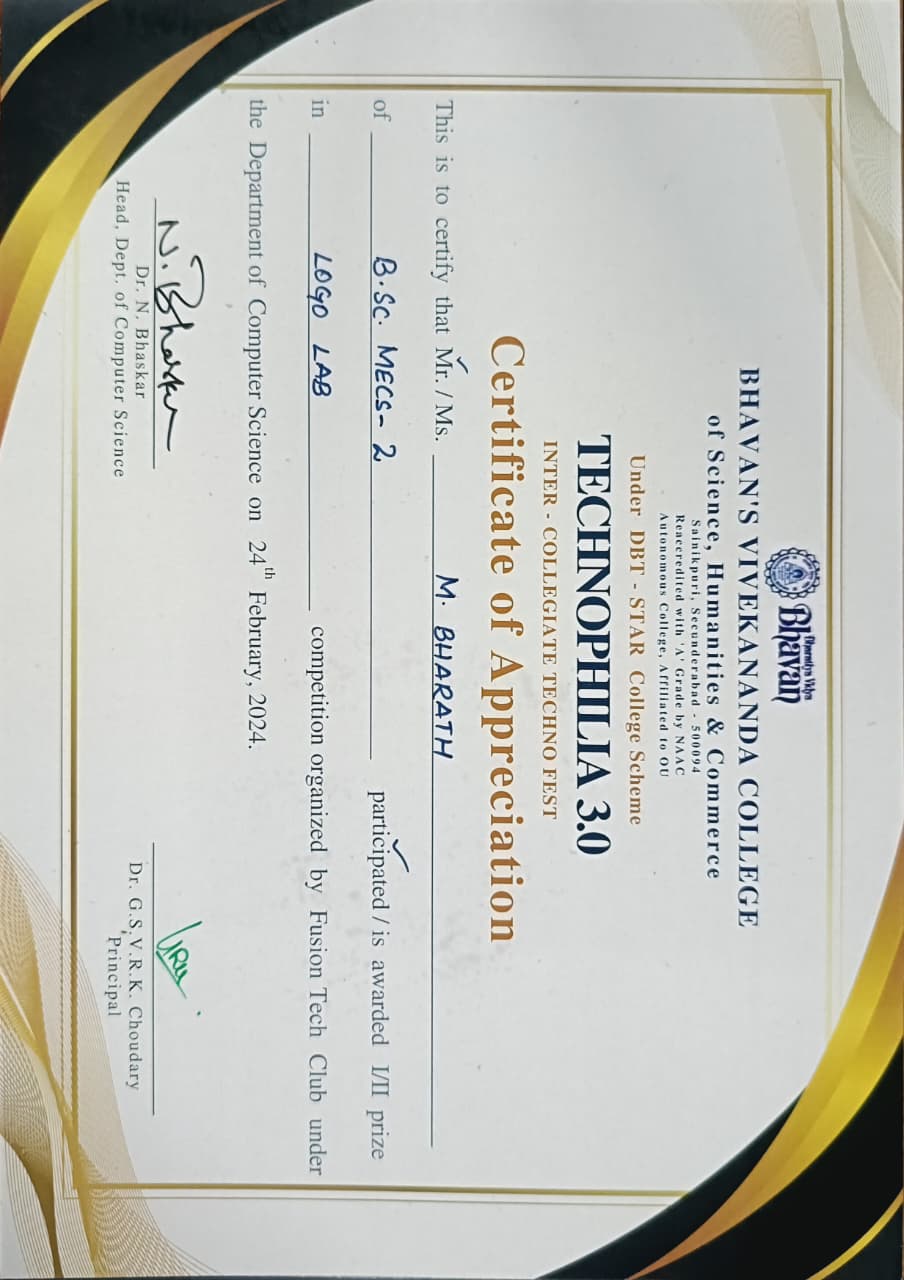 Bharatiya Vidya
Bhavan
BHAVAN'S VIVEKANANDA COLLEGE
of Science, Humanities & Commerce
Sainikpuri, Secunderabad - 500094
Reaccredited with 'A' Grade by NAAC
Autonomous College, Affiliated to OU
Under DBT - STAR College Scheme
TECHNOPHILIA 3.0
INTER - COLLEGIATE TECHNO FEST
Certificate of Appreciation
This is to certify that Mr. / Ms. M. BHARATH
of B.SC. MECS- 2 participated / is awarded I/II prize
in LOGO LAB competition organized by Fusion Tech Club under
the Department of Computer Science on 24th February, 2024.
N. Bhaskar
Dr. N. Bhaskar
Head, Dept. of Computer Science
Dr. G.S.V.R.K. Choudary
Principal